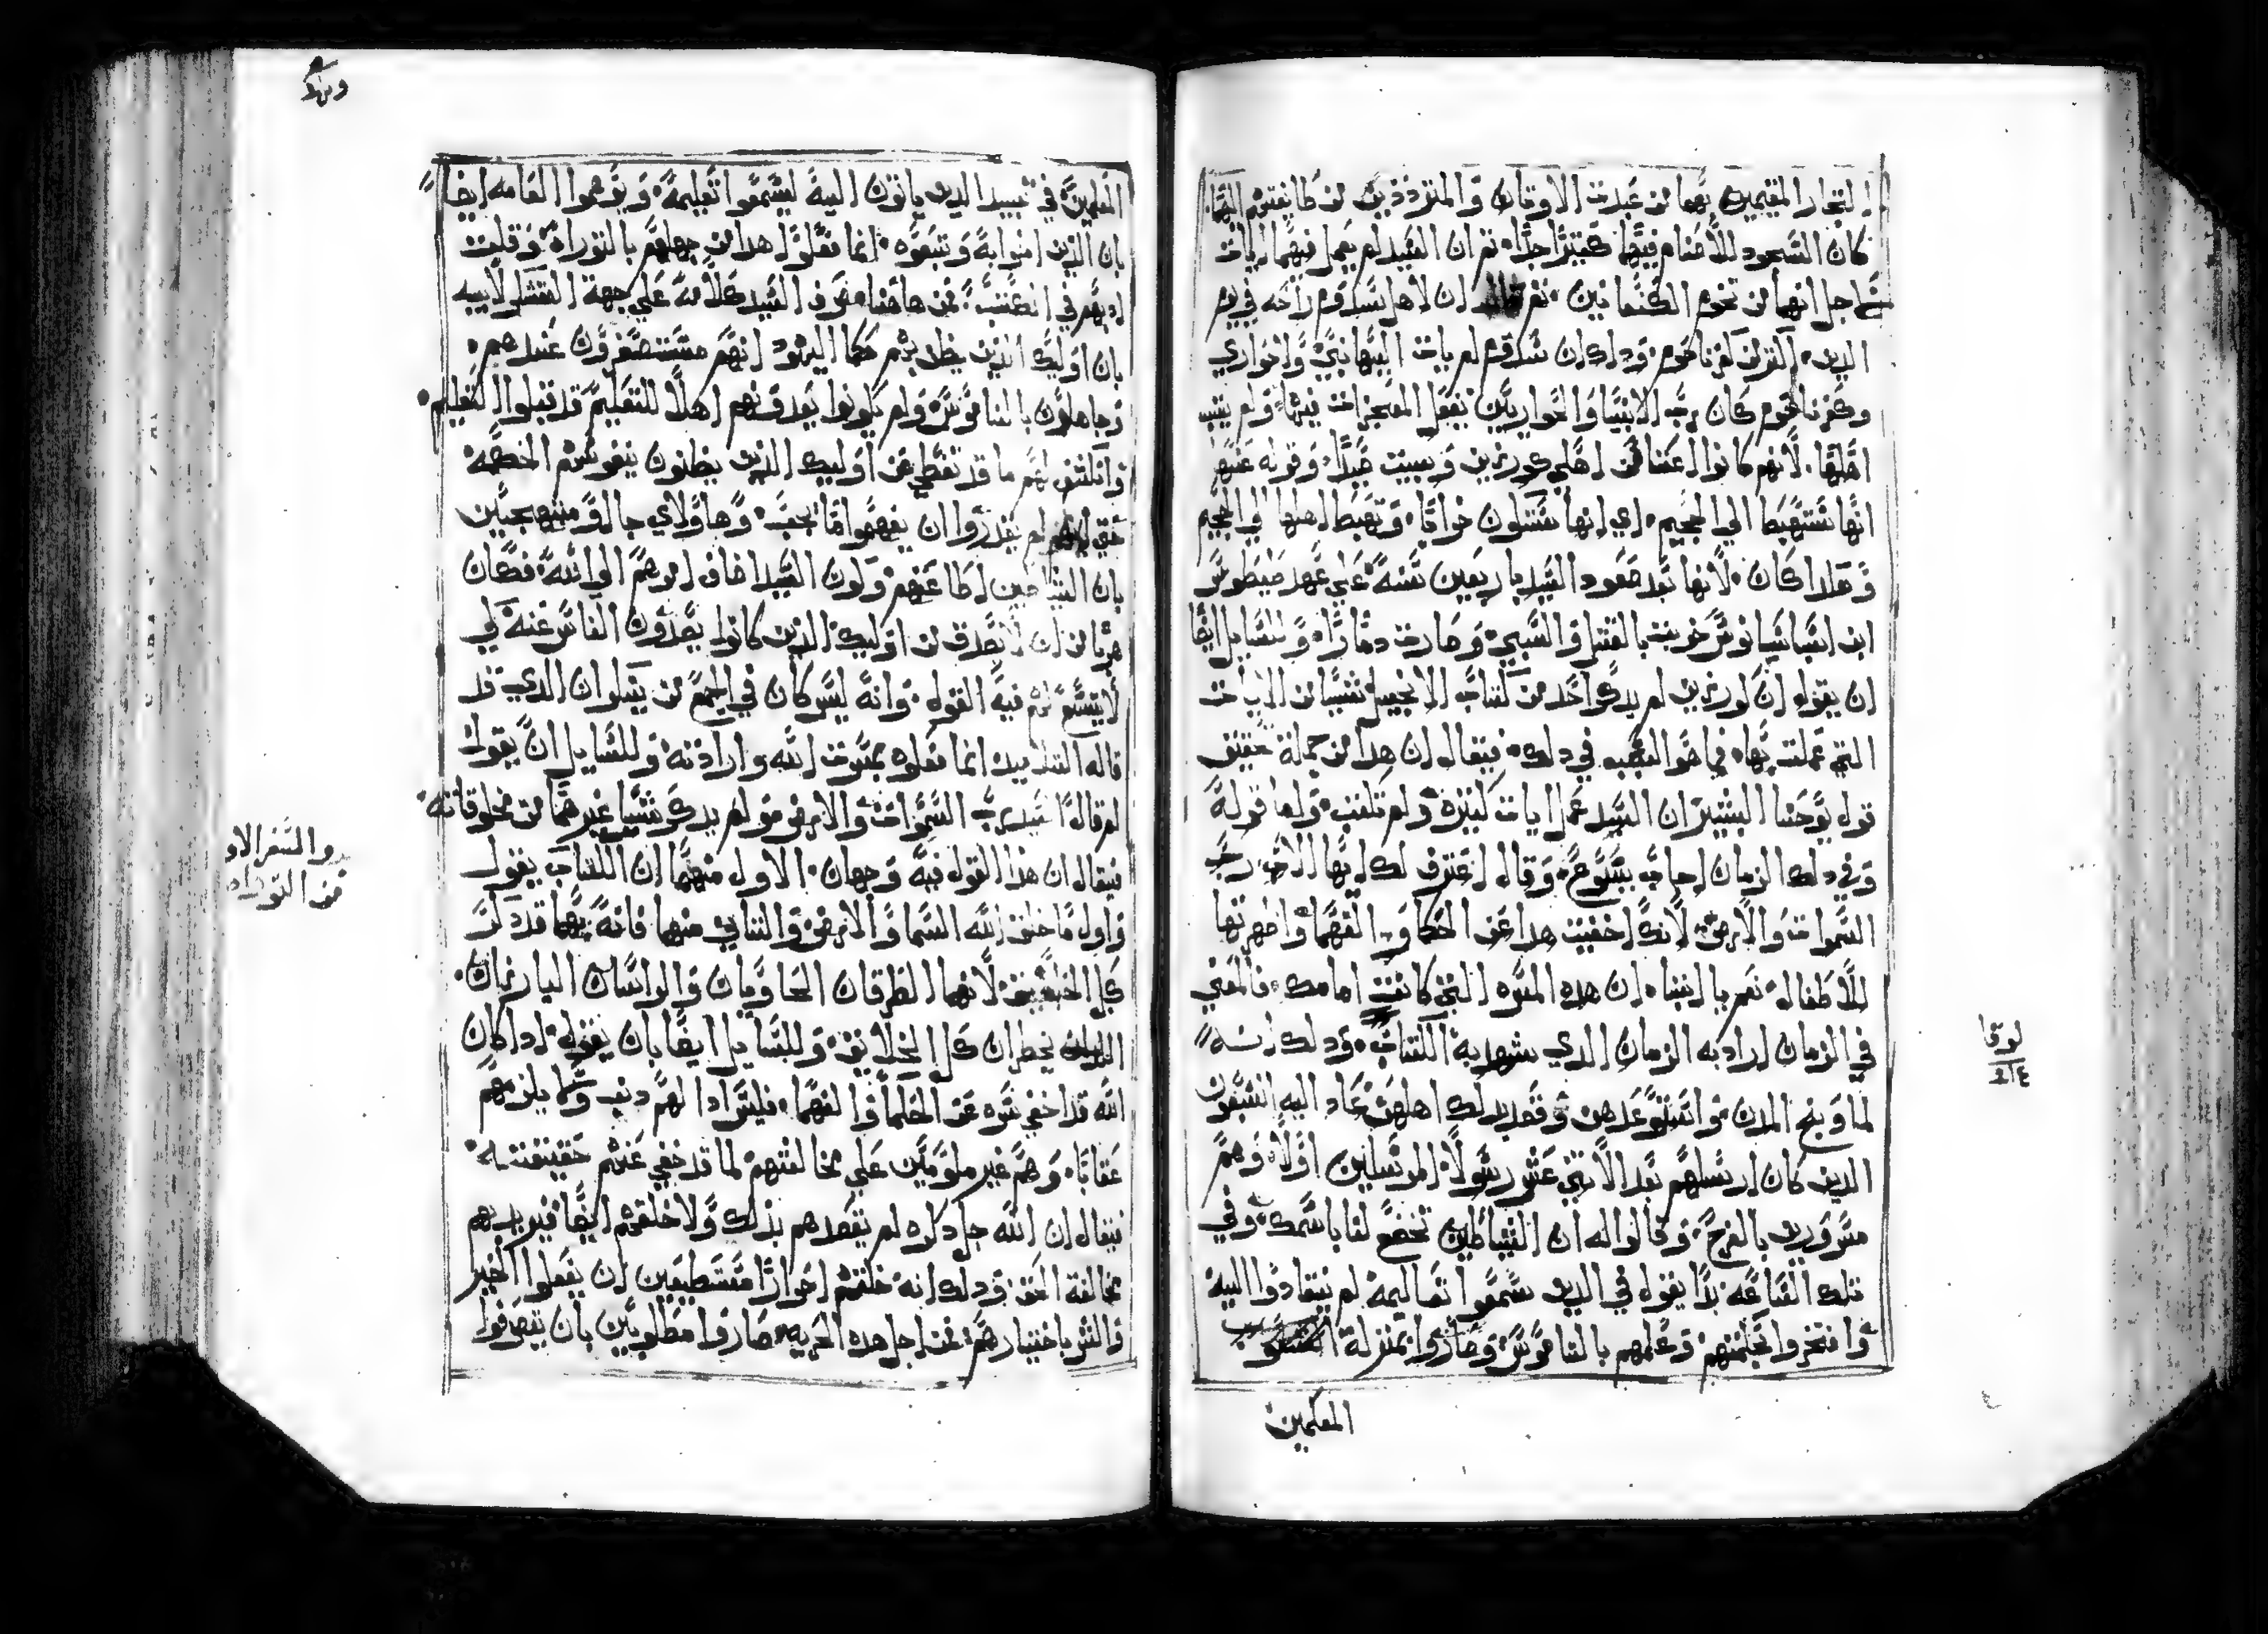 التجار المقيمين بها من عبدت الاوتان والمترددين من كا يفتري اليها
كان السجود للأصنام فيها كتيرا جدا. تم ان السيد لم يعمل فيهما ايات
اجل انها من تخوم الكنعانين. نعم ان لاهل سدوم راحه في يوم
الدين. اكترمن كفرناحوم. ودلك ان سدوم لم يات اليها نبي ولاحواري
وكفرناحوم كان رب الانبيا والحواريين يفعل المعجزات فيها ولم يتب
اهلها. لأنهم كانوا اعتا من اهلي كورزين وبيت صيدا. وقوله عنها
انها ستهبط الي الجحيم. اي انها ستكون خرابا. وتهبط اهلها الي الجحيم
وهكدا كان. لأنها بعد صعود السيد باربعين سنة علي عهد طيطوس
ابن اسباسيانوس خربت بالقتل والسبي. وصارت دمارا. وللسايل ايضا
ان يقول ان كورزين لم يدكر احد من كتاب الانجيل شيا من الايات
التي عملت بها. فما هو السبب في دلك. فيقال ان هدا من جملة تحقيق
قول يوحنا البشير ان السيد عمل ايات كتيره ولم تكتب. واما قوله
وفي دلك الزمان اجاب يسوع. وقال اعترف لك ايها الاب رب
السموات والارض. لأنك اخفيت هدا عن الحكما والفهما واظهرتها
للأطفال. نعم يا ابتاه. ان هده المسره التي كانت امامك. فالمعني
في الزمان اراد به الزمان الدي شهد به الكتاب. ودلك انه
لما وبخ المدن عاد اليه السبعون
الدين كان ارسلهم بعد الاتني عشر رسولا المرسلين اولا. وهم
مسرورين بالفرح. وقالوا له ان الشياطين تخضع لنا باسمك. وفي
تلك الساعه بدا يقول في الدين سمعوا تعاليمه لم ينقادوا اليه
وافتخروا بحكمتهم وعلمهم بالناموس. وصاروا بمنزلة
المعلمين
لوقا
المعلمين في تبييد الدين ياتون اليه ليسمعوا تعليمه. ويوهموا العامه ايضا
بان الدين امنوا به وتبعوه. انما فعلوا هدا من جهلهم بالتوراه. وقلت
ادبهم في انفسهم. فمن هاهنا صرف السيد كلامه علي جهة التشكر لأبيه
بان اوليك الدين يظن بهم حكما اليهود انهم مستصغرون عندهم.
وجاهلون بالناموس. ولم يكونوا يعدونهم اهلا للتعليم قد قبلوا التعليم.
وانكشف لهم ما قد تغطي عن اوليك الدين يظنون بنفوسهم الحكمه
حتي انهم لم يقدروا ان يفهموا مايجب. وهاولاي جالوا مبتهجين
بان الشياطين اطاعتهم. ولون السيد اضاف امرهم الي الله. فكان
هربا من ان لايصدق من اوليك الدين كانوا يصدون الناس عنه لكي
لا يتسع لهم فيه القول. وانه ليس كان في الجمع من يقبلوان الدي قد
قاله التلاميد انما فعلوه بمسرت الله وارادته. وللسايل ان يقول
لم قال السيد رب السموات والارض. ولم يدكر شيا غيرهما من مخلوقاته.
فيقال ان هدا القول فيه وجهان. الاول منهما ان الكتاب يقول
واول ما خلق الله السما والارض. والتاني منهما فانه بهما قد دكر
كل الخليقه. لأنهما الطرفان الحاويان والراسان البارزان.
اللدان يحطران كل الخلايق. وللسايل ايضا بان يقول. ادا كان
الله قد اخفي سره عن الحلما والفهما. فليس ادا لهم دنب ولا يلزمهم
عقابا. وهم غير ملومين علي مخالفتهم لما قد خفي عنهم حقيقته
فيقال ان الله جل دكره لم يقصدهم بدلك ولا خلقهم ايضا فيريد بهم
مخالفة الحق. ودلك انه خلقهم احرارا مستطيعين ان يفعلوا الخير
والشر باختيارهم. فمن اجل هده الحريه. صاروا مطلوبين بان يتصرفوا
والسفر الاو
من التوراه